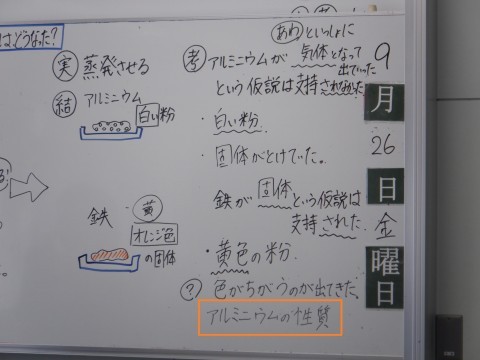 はどうなった?
実 蒸発させる
結 アルミニウム
白い粉
鉄 黄
オレンジ色
の固体
あわといっしょに
考 アルミニウムが気体となって
出ていった
という仮説は支持されなかった
・白い粉
・固体がとけていた。
鉄が固体という仮説は
支持された。
・黄色の粉
? 色がちがうのが出てきた。
アルミニウムの性質
9
月
26
日
金
曜
日